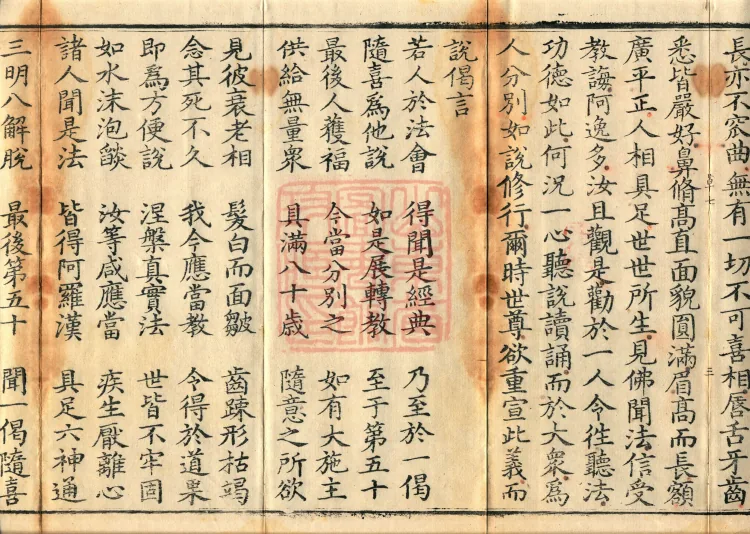 長亦不窊曲無有一切不可喜相唇舌牙齒
悉皆嚴好鼻脩高直面貌圓滿眉高而長額
廣平正人相具足世世所生見佛聞法信受
教誨阿逸多汝且觀是勸於一人令往聽法
功德如此何況一心聽說讀誦而於大衆爲
人分別如說修行爾時世尊欲重宣此義而
說偈言
若人於法會 得聞是經典 乃至於一偈
隨喜爲他說 如是展轉教 至于第五十
最後人獲福 今當分別之 如有大施主
供給無量衆 具滿八十歲 隨意之所欲
見彼衰老相 髮白而面皺 齒踈形枯竭
念其死不久 我今應當教 令得於道果
即爲方便說 涅槃真實法 世皆不牢固
如水沫泡𦦨 汝等咸應當 疾生厭離心
諸人聞是法 皆得阿羅漢 具足六神通
三明八解脫 最後第五十 聞一偈隨喜